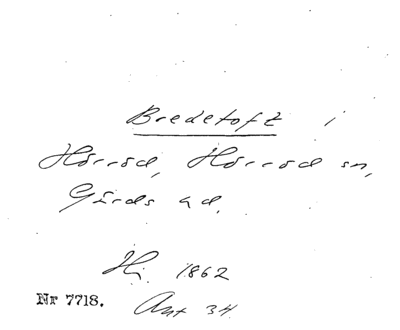 Bredetoft i
Hörröd, Hörröd sn,
Gärds hd.
Hj. 1862
Nr 7718. Akt 34